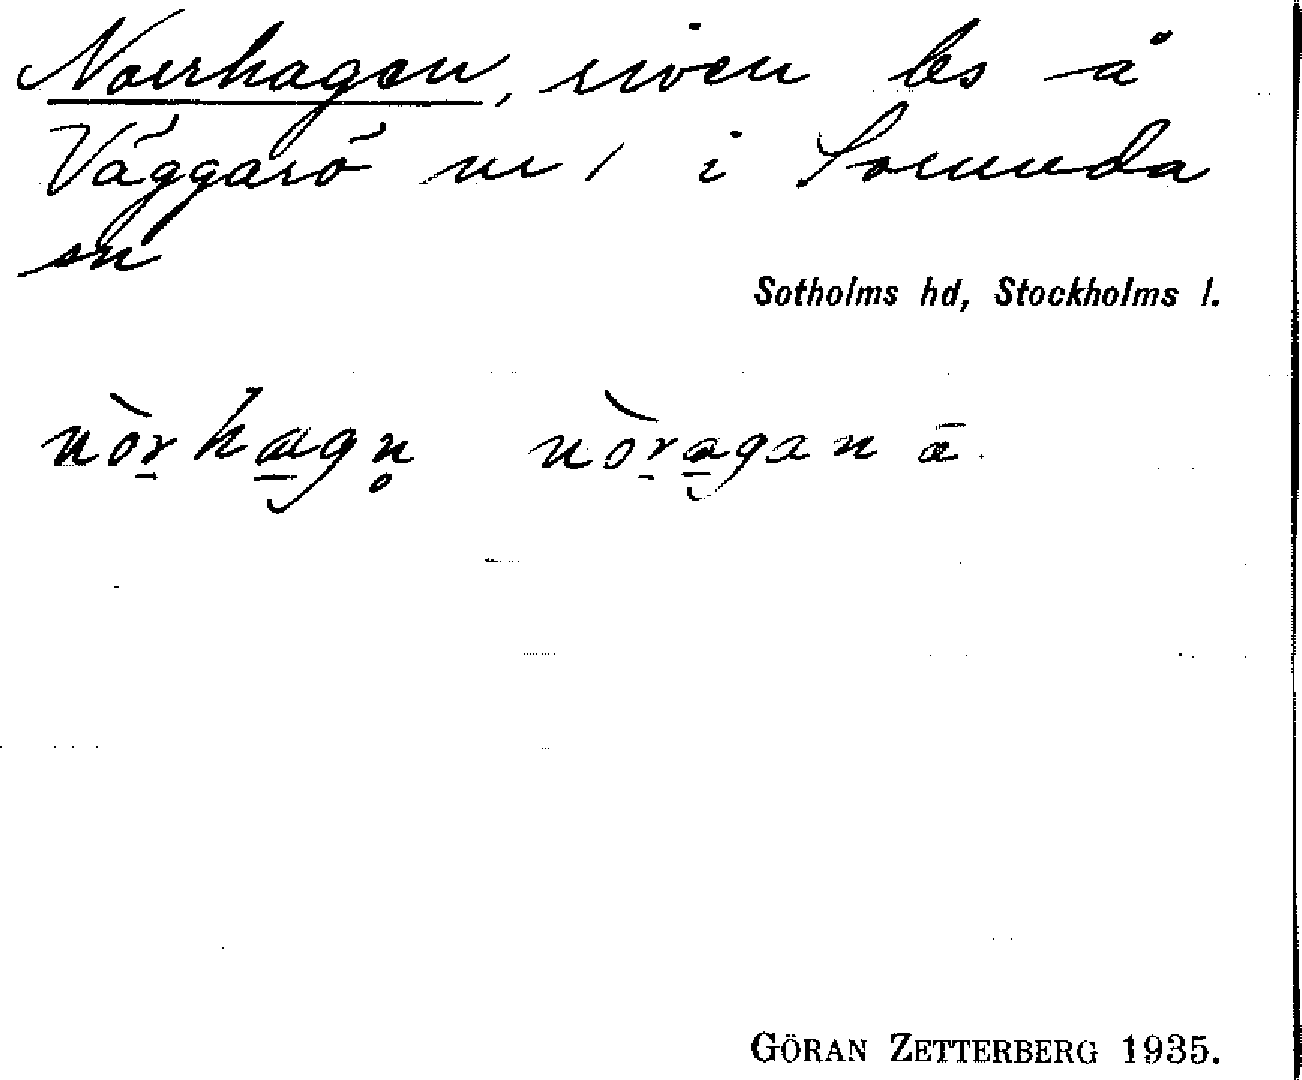 Norrhagen, riven bs å
Väggarö nr 1 i Sorunda
sn
Sotholms hd, Stockholms l.
nòrhagn̥ nòragan ā.
GÖRAN ZETTERBERG 1935.